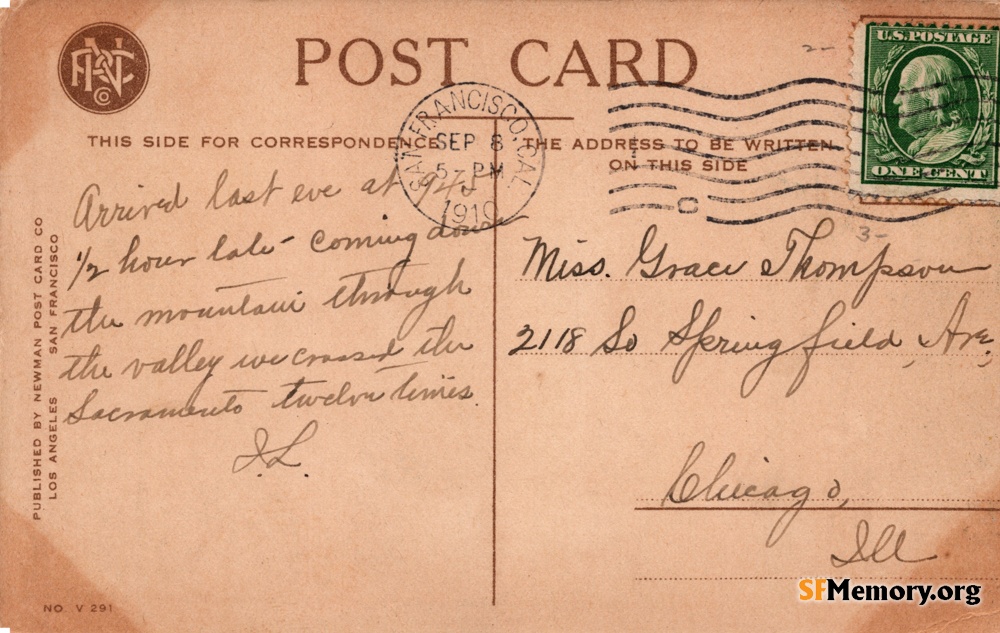 POST CARD
U.S. POSTAGE
ONE CENT
SAN FRANCISCO, CAL.
SEP 8
5 - PM
1910
THIS SIDE FOR CORRESPONDENCE
THE ADDRESS TO BE WRITTEN
ON THIS SIDE
Arrived last eve at
1/2 hour late - coming down
the mountain through
the valley we crossed the
Sacramento twelve times.
Miss. Grace Thompson
2118 So Springfield, Ave,
Chicago,
Ill
PUBLISHED BY NEWMAN POST CARD CO
LOS ANGELES SAN FRANCISCO
NO. V 291
2-
3-
SFMemory.org